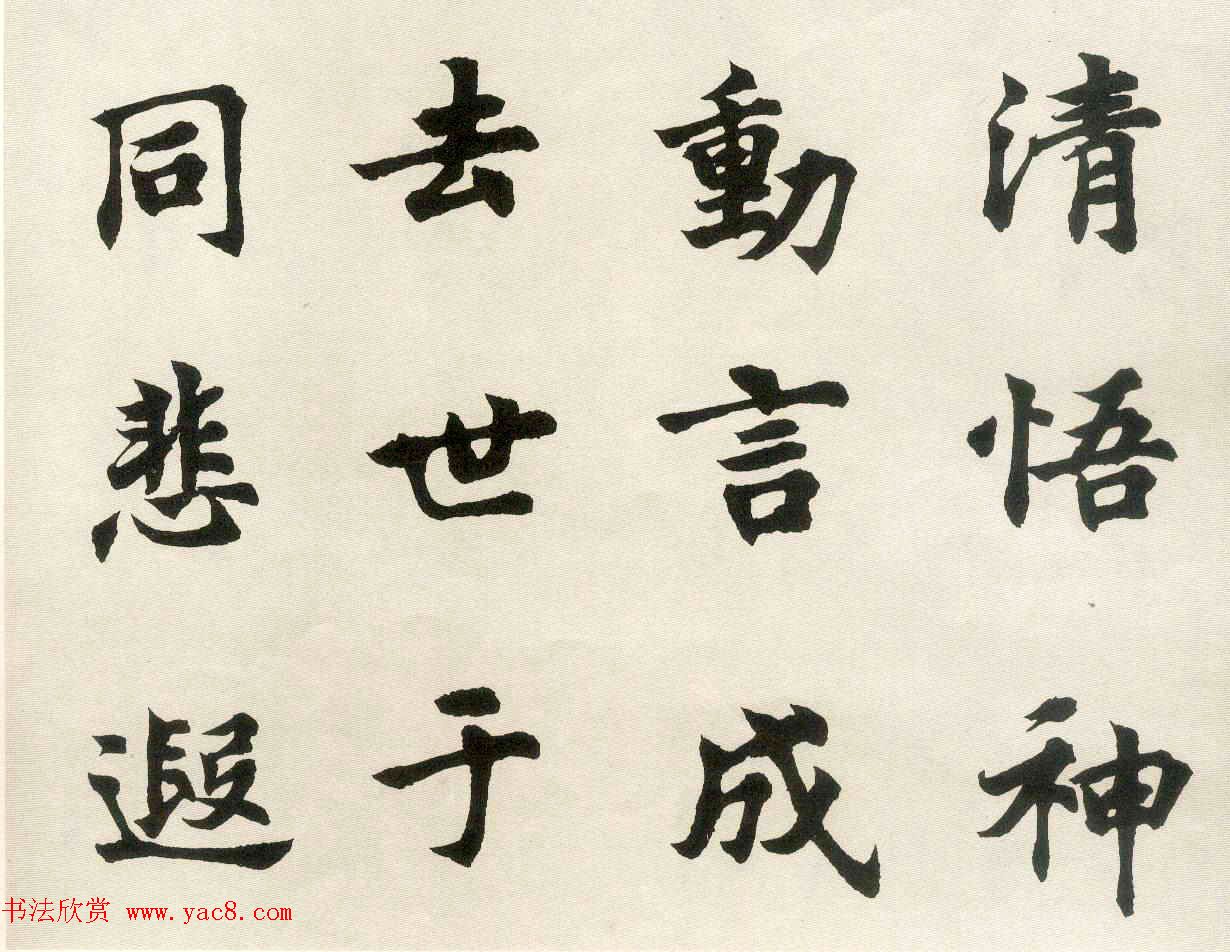 清悟神
動言成
去世于
同悲遐
书法欣赏 www.yac8.com